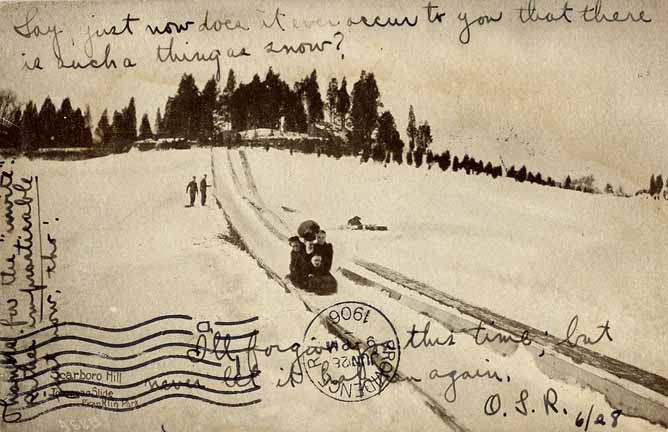 Say, just now does it ever occur to you that there
is such a thing as snow?
Thanks for the "invite"
rather impracticable
just now, tho'.
I'll forgive you this time; but
never let it happen again.
O.S.R. 6/28
Scarboro Hill
Toboggan Slide
Franklin Park
PROVIDENCE, R.I.
JUN 28
6 PM
1906